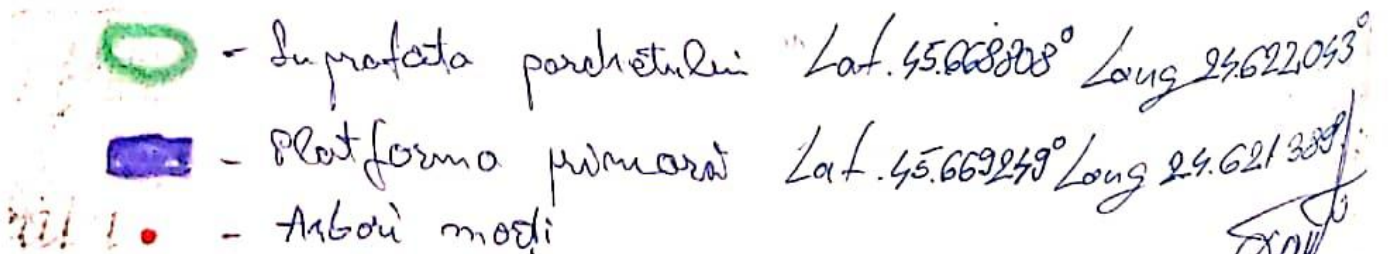 - Suprafata parchetului Lat. 45.668808° Long 24.622043°
- Platforma primară Lat. 45.669249° Long 24.621389°
- Arbori morți